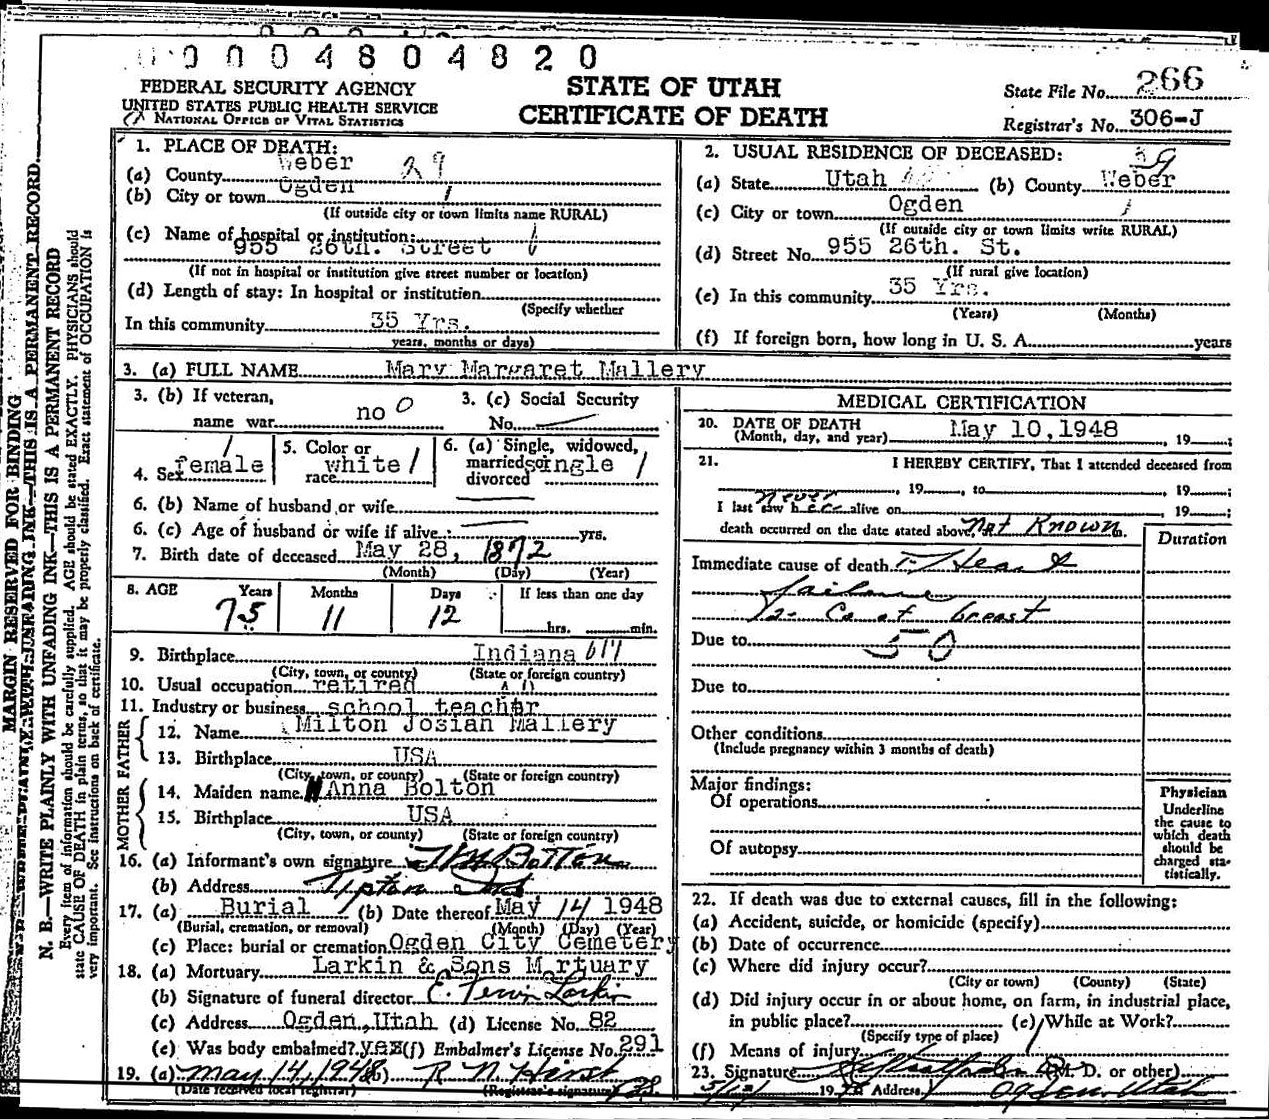 0004804820
FEDERAL SECURITY AGENCY
UNITED STATES PUBLIC HEALTH SERVICE
NATIONAL OFFICE OF VITAL STATISTICS
STATE OF UTAH
CERTIFICATE OF DEATH
State File No. 266
Registrar's No. 306-J
MARGIN RESERVED FOR BINDING
N. B.—WRITE PLAINLY WITH UNFADING INK—THIS IS A PERMANENT RECORD
Every item of information should be carefully supplied. AGE should be stated EXACTLY. PHYSICIANS should
state CAUSE OF DEATH in plain terms, so that it may be properly classified. Exact statement of OCCUPATION is
very important. See instructions on back of certificate.
1. PLACE OF DEATH:
(a) County Weber 29
(b) City or town Ogden 1
(If outside city or town limits name RURAL)
(c) Name of hospital or institution:
955 26th. Street
(If not in hospital or institution give street number or location)
(d) Length of stay: In hospital or institution
(Specify whether
In this community 35 Yrs.
years, months or days)
2. USUAL RESIDENCE OF DECEASED: 29
(a) State Utah (b) County Weber
(c) City or town Ogden 1
(If outside city or town limits write RURAL)
(d) Street No. 955 26th. St.
(If rural give location)
(e) In this community 35 Yrs.
(Years) (Months)
(f) If foreign born, how long in U. S. A. years
3. (a) FULL NAME Mary Margaret Mallery
3. (b) If veteran,
name war no 0
3. (c) Social Security
No.
4. Sex female 1
5. Color or
race white 1
6. (a) Single, widowed,
married or
divorced single 1
6. (b) Name of husband or wife
6. (c) Age of husband or wife if alive yrs.
7. Birth date of deceased May 28, 1872
(Month) (Day) (Year)
8. AGE Years Months Days If less than one day
75 11 12 hrs. min.
9. Birthplace Indiana
(City, town, or county) (State or foreign country)
10. Usual occupation retired
11. Industry or business school teacher
FATHER
12. Name Milton Josian Mallery
13. Birthplace USA
(City, town, or county) (State or foreign country)
MOTHER
14. Maiden name Anna Bolton
15. Birthplace USA
(City, town, or county) (State or foreign country)
16. (a) Informant's own signature
(b) Address Tipton Ind
17. (a) Burial 1 (b) Date thereof May 14 1948
(Burial, cremation, or removal) (Month) (Day) (Year)
(c) Place: burial or cremation Ogden City Cemetery
18. (a) Mortuary Larkin & Sons Mortuary
(b) Signature of funeral director E. Larkin
(c) Address Ogden, Utah (d) License No. 82
(e) Was body embalmed? yes (f) Embalmer's License No. 291
19. (a) May 14, 1948 (b) R N Hirst
(Date received local registrar) (Registrar's signature)
MEDICAL CERTIFICATION
20. DATE OF DEATH
(Month, day, and year) May 10, 1948, 19
21. I HEREBY CERTIFY, That I attended deceased from
, 19 , to , 19
never
I last saw her alive on , 19
death occurred on the date stated above, Not Known m.
Duration
Immediate cause of death 1- Heart
failure
2- Ca of breast
Due to 50
Due to
Other conditions
(Include pregnancy within 3 months of death)
Major findings:
Of operations
Of autopsy
Physician
Underline
the cause to
which death
should be
charged sta-
tistically.
22. If death was due to external causes, fill in the following:
(a) Accident, suicide, or homicide (specify)
(b) Date of occurrence
(c) Where did injury occur?
(City or town) (County) (State)
(d) Did injury occur in or about home, on farm, in industrial place,
in public place? (e) While at Work?
(Specify type of place)
(f) Means of injury
23. Signature (M. D. or other)
1948 Address Ogden Utah